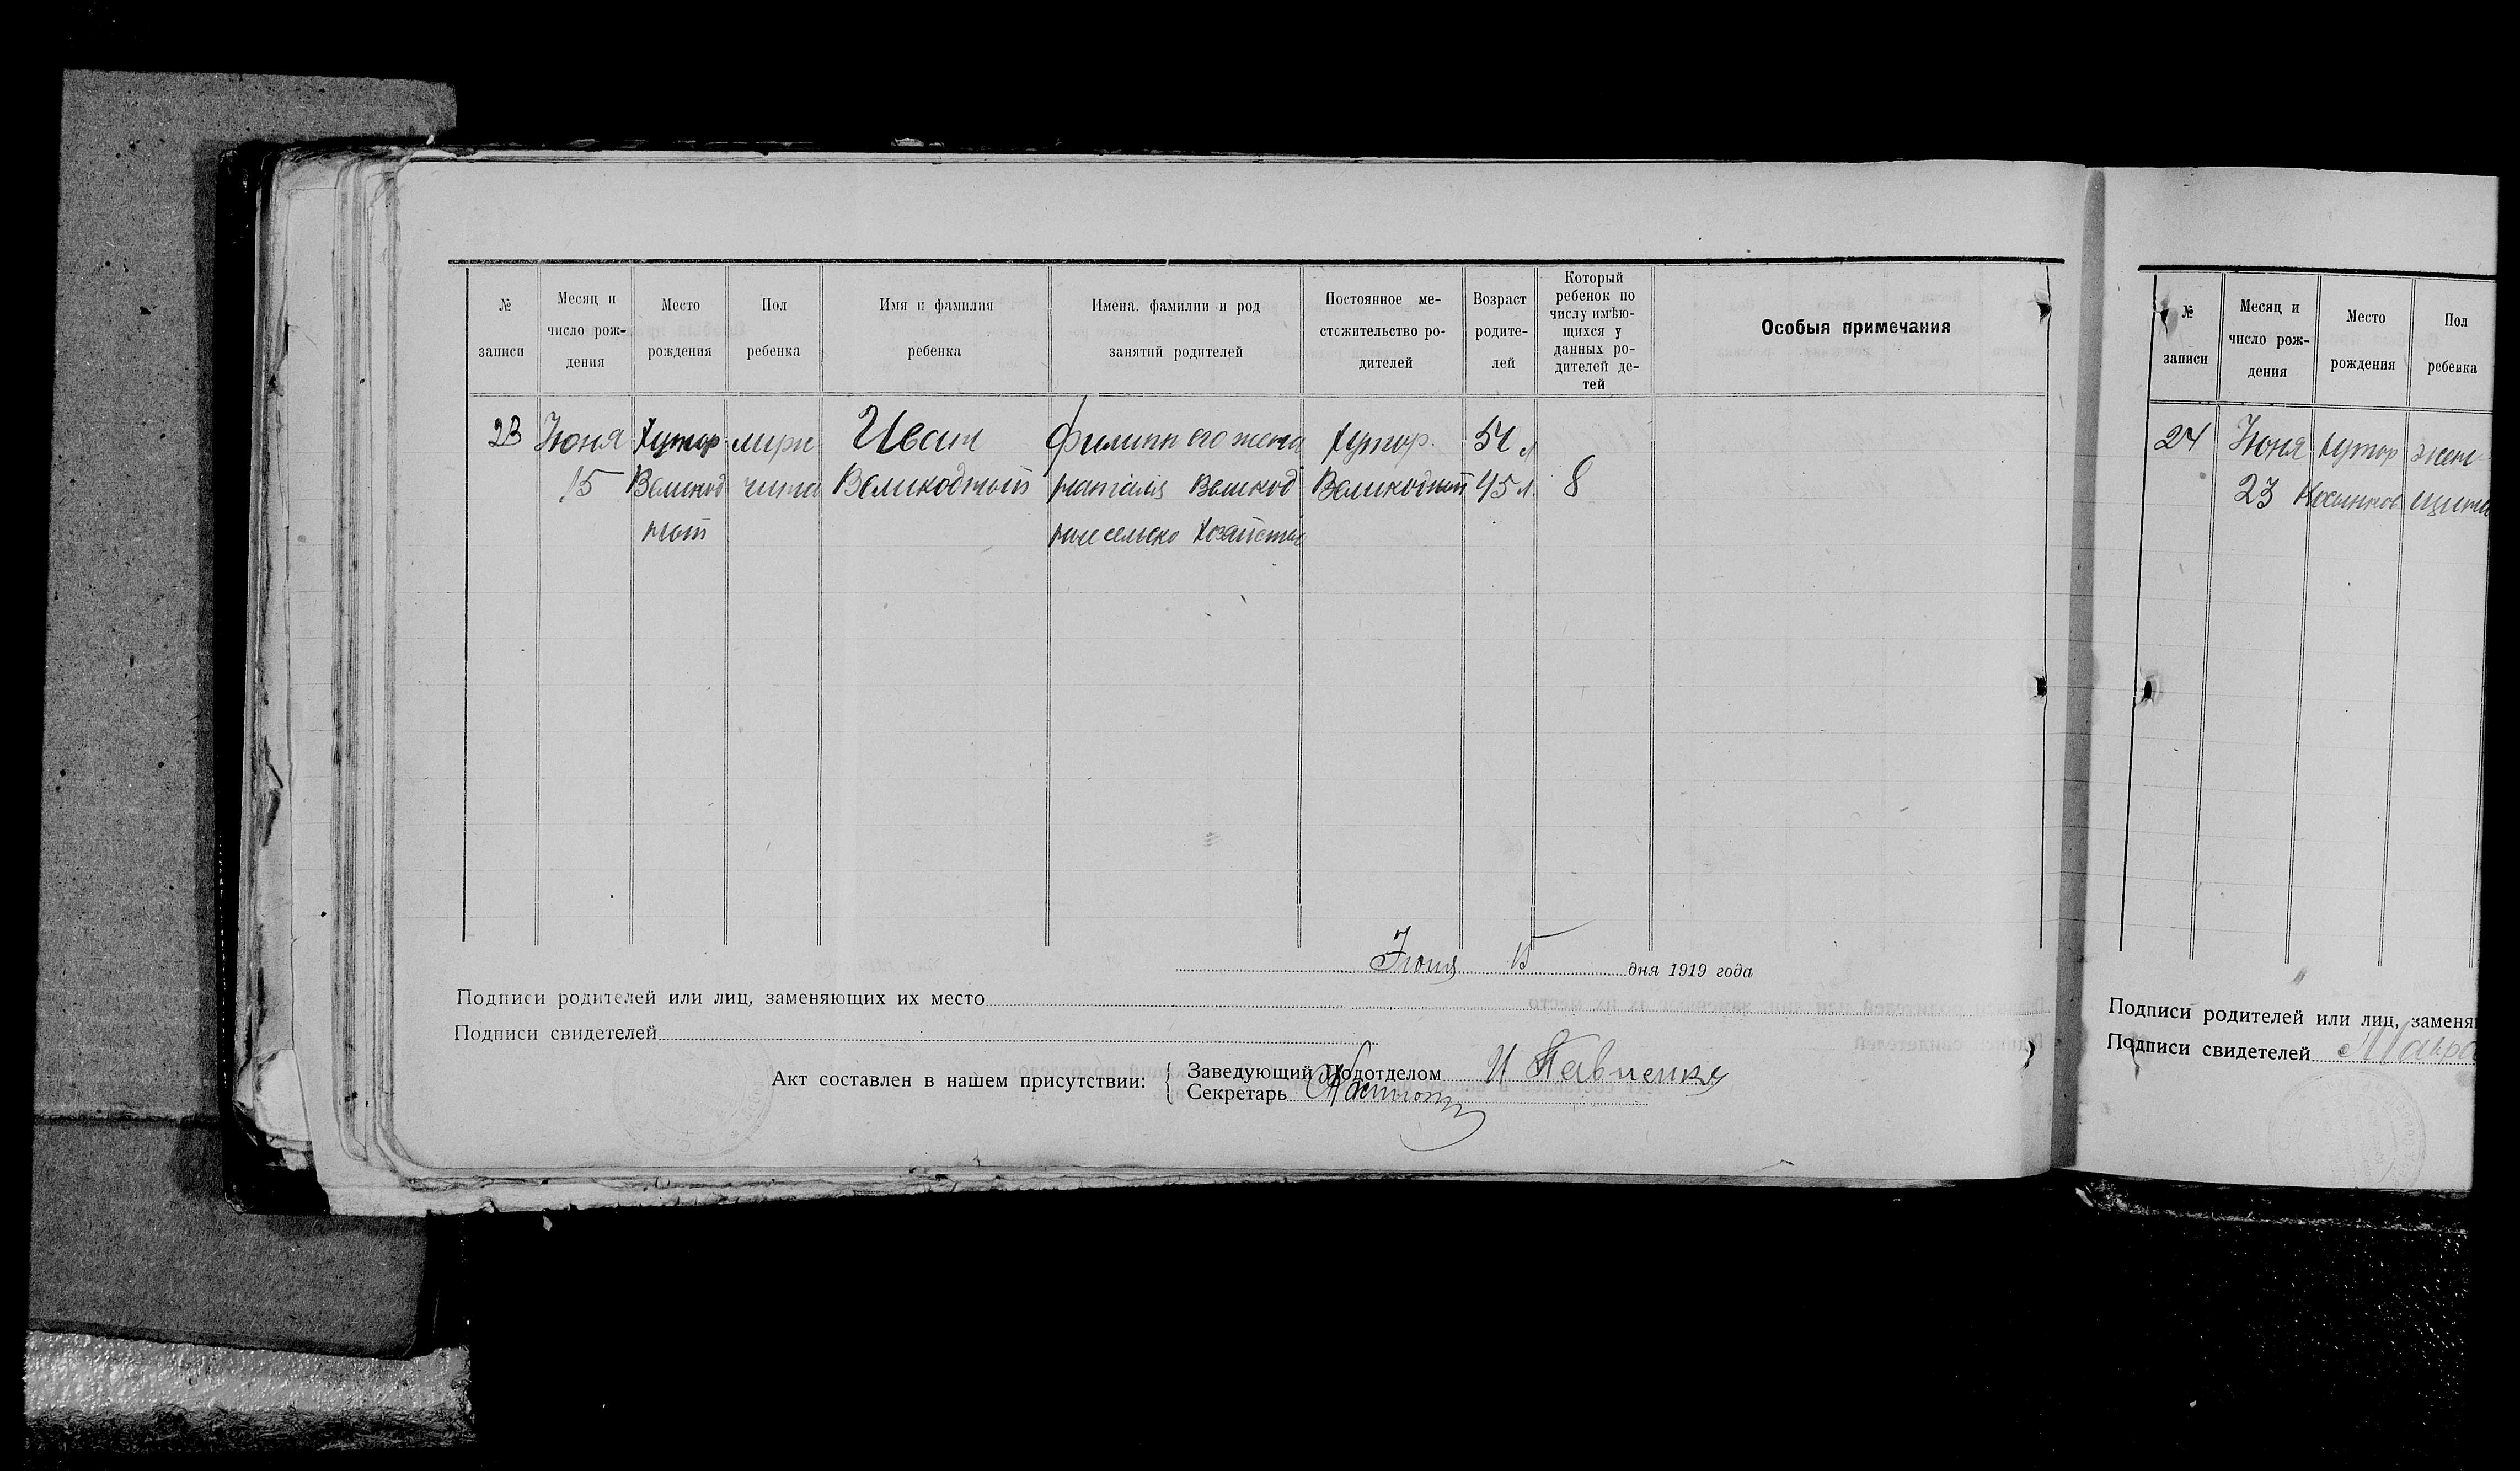 № записи
Месяц и число рож-дения
Место рождения
Пол ребенка
Имя и фамилия ребенка
Имена. фамилии и род занятий родителей
Постоянное ме-стожительство ро-дителей
Возраст родите-лей
Который ребенок по числу имѣю-щихся у данных ро-дителей де-тей
Особыя примечания
23 Июня Хутор мущ Иван Филипп его жена хутор. 54 л
15 Великод чина Великодный Наталия Великод Великодный 45 л 8
ный ные сельско хозяйство
Июня 15 дня 1919 года
Подписи родителей или лиц, заменяющих их место
Подписи свидетелей
Акт составлен в нашем присутствии:
Заведующий Подотделом И Павленко
Секретарь
№ записи
Месяц и число рож-дения
Место рождения
Пол ребенка
24 Июня хутор жен
23 щина
Подписи родителей или лиц, заменя
Подписи свидетелей